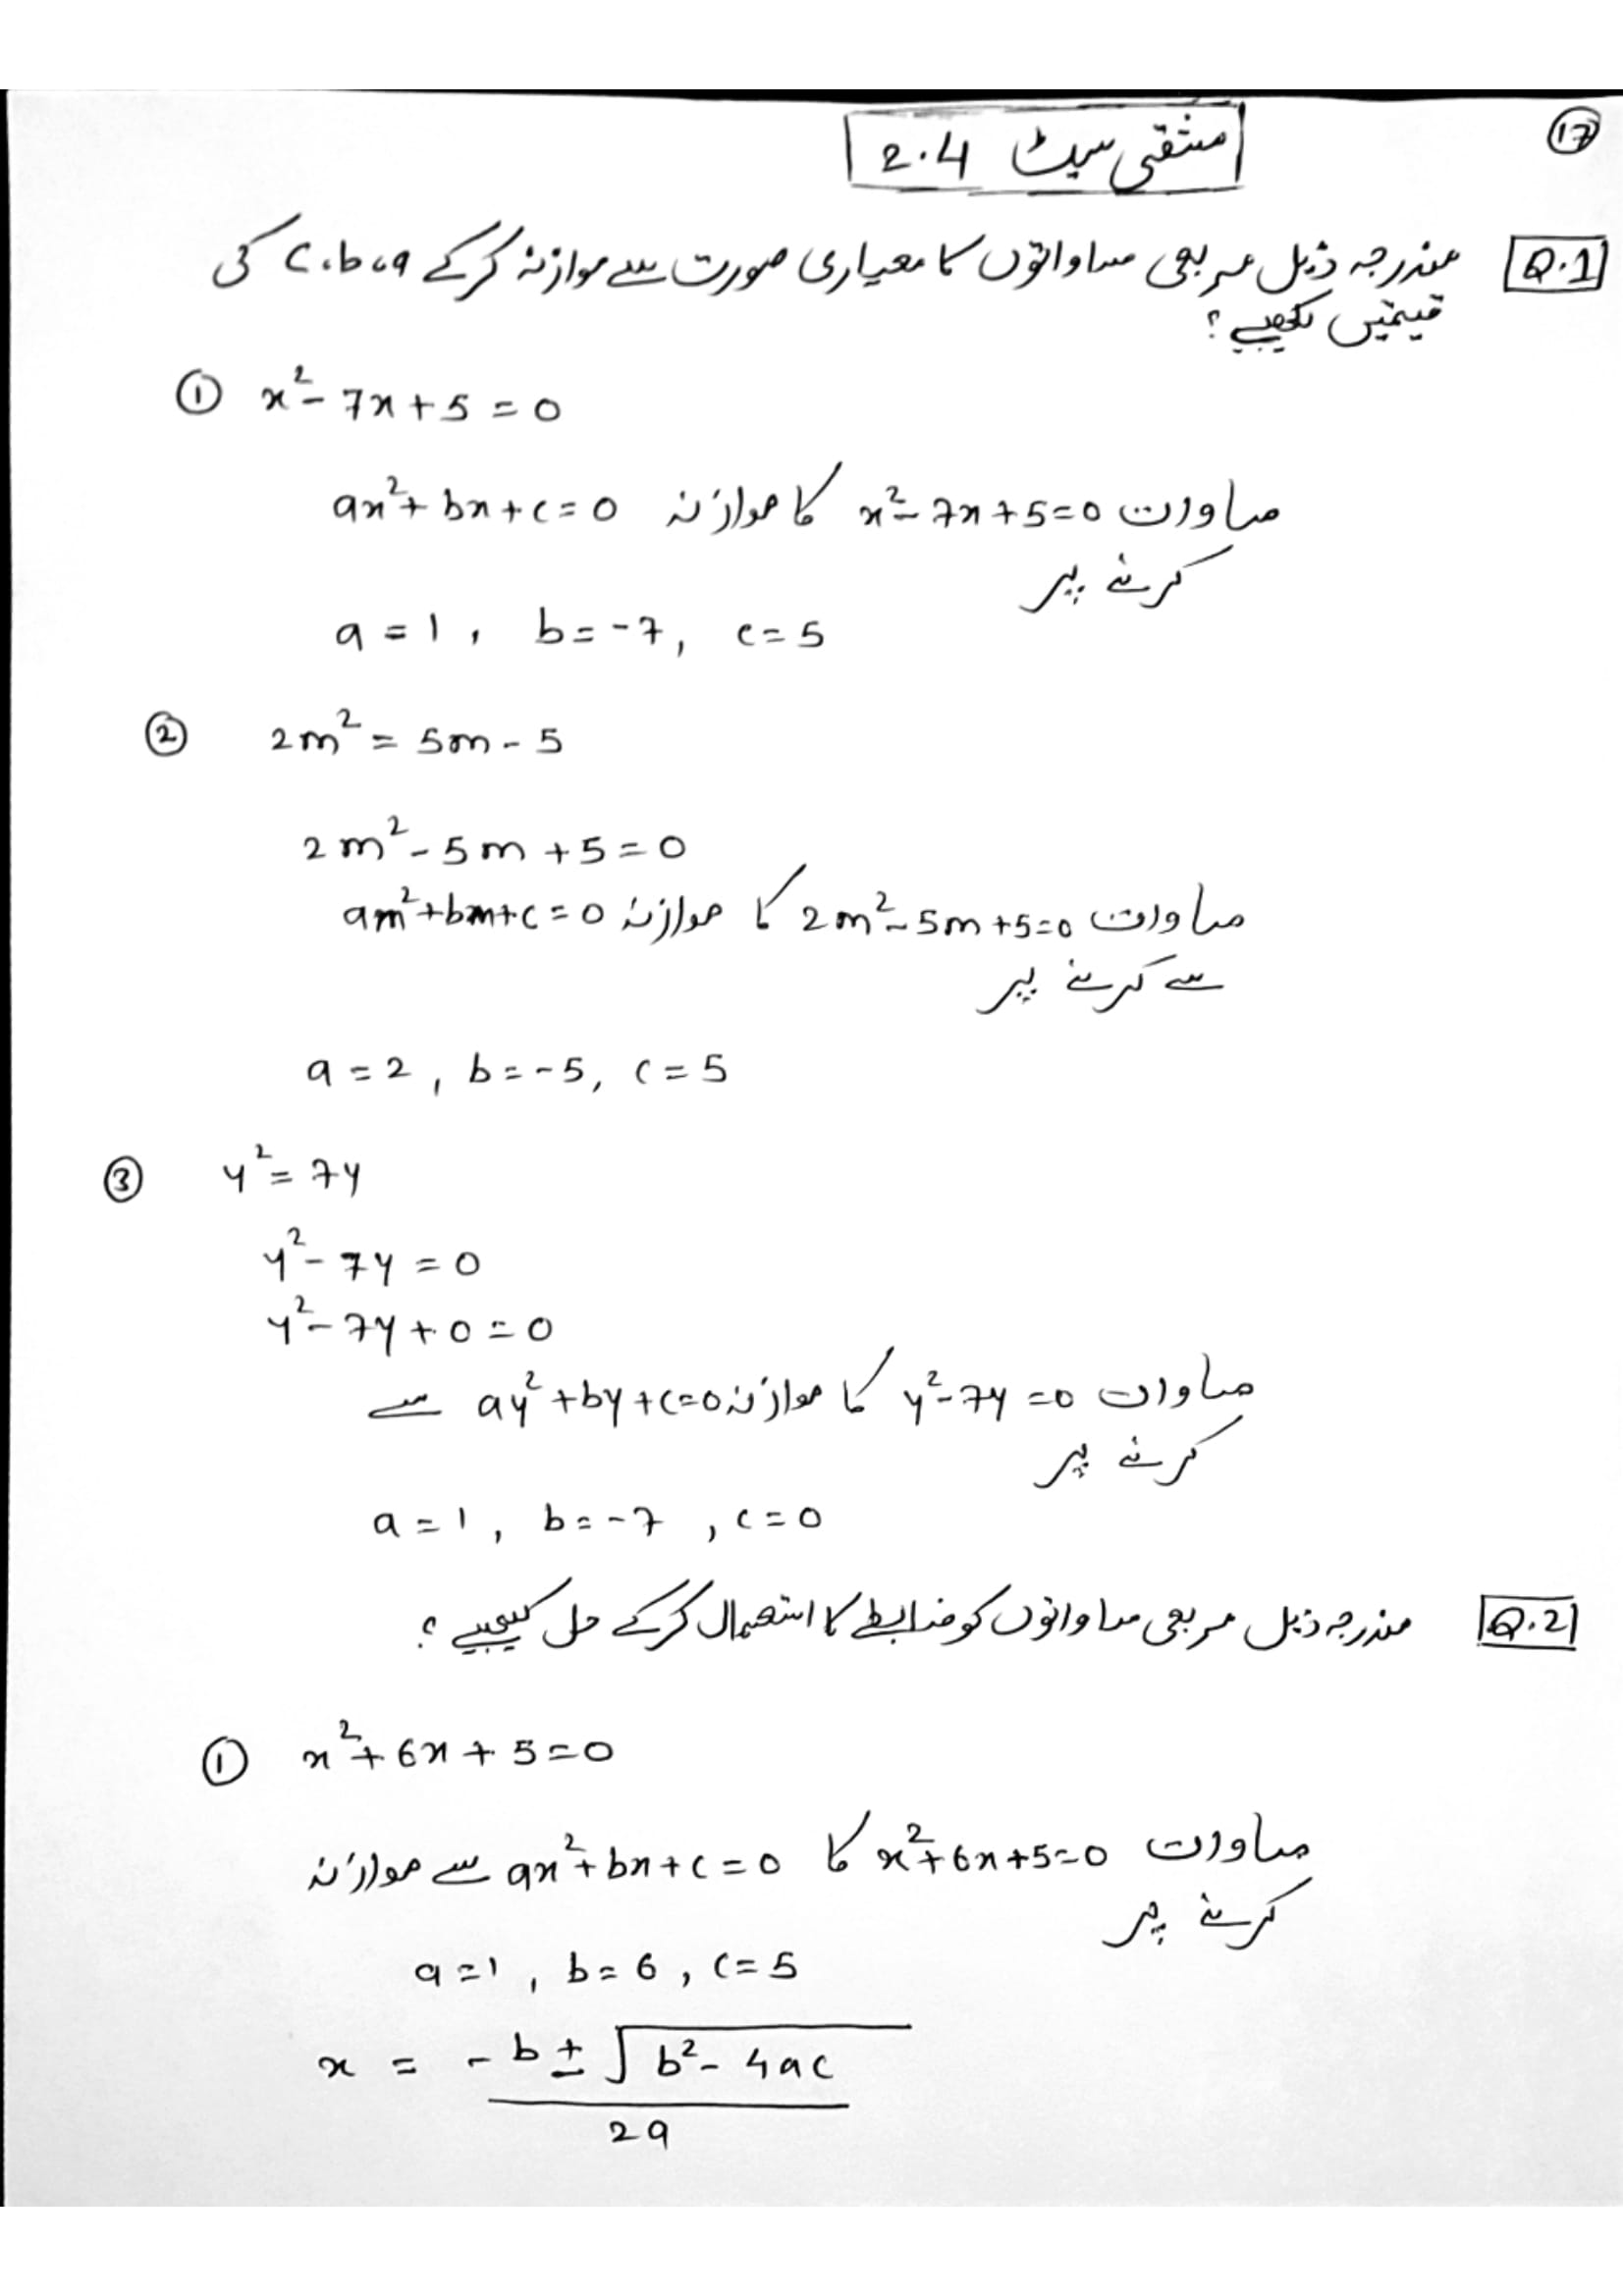 17
مشقی سیٹ 2.4
Q.1 مندرجہ ذیل مربعی مساواتوں کا معیاری صورت سے موازنہ کرکے a، b، c کی
قیمتیں لکھیے؟
① x² - 7x + 5 = 0
مساوات x² - 7x + 5 = 0 کا موازنہ ax² + bx + c = 0
کرنے پر
a = 1 , b = -7, c = 5
② 2m² = 5m - 5
2m² - 5m + 5 = 0
مساوات 2m² - 5m + 5 = 0 کا موازنہ am² + bm + c = 0
سے کرنے پر
a = 2 , b = -5, c = 5
③ y² = 7y
y² - 7y = 0
y² - 7y + 0 = 0
مساوات y² - 7y = 0 کا موازنہ ay² + by + c = 0 سے
کرنے پر
a = 1 , b = -7 , c = 0
Q.2 مندرجہ ذیل مربعی مساواتوں کو ضابطے کا استعمال کرکے حل کیجیے؟
① x² + 6x + 5 = 0
مساوات x² + 6x + 5 = 0 کا ax² + bx + c = 0 سے موازنہ
کرنے پر
a = 1 , b = 6 , c = 5
x = - b ± √ b² - 4ac
2a